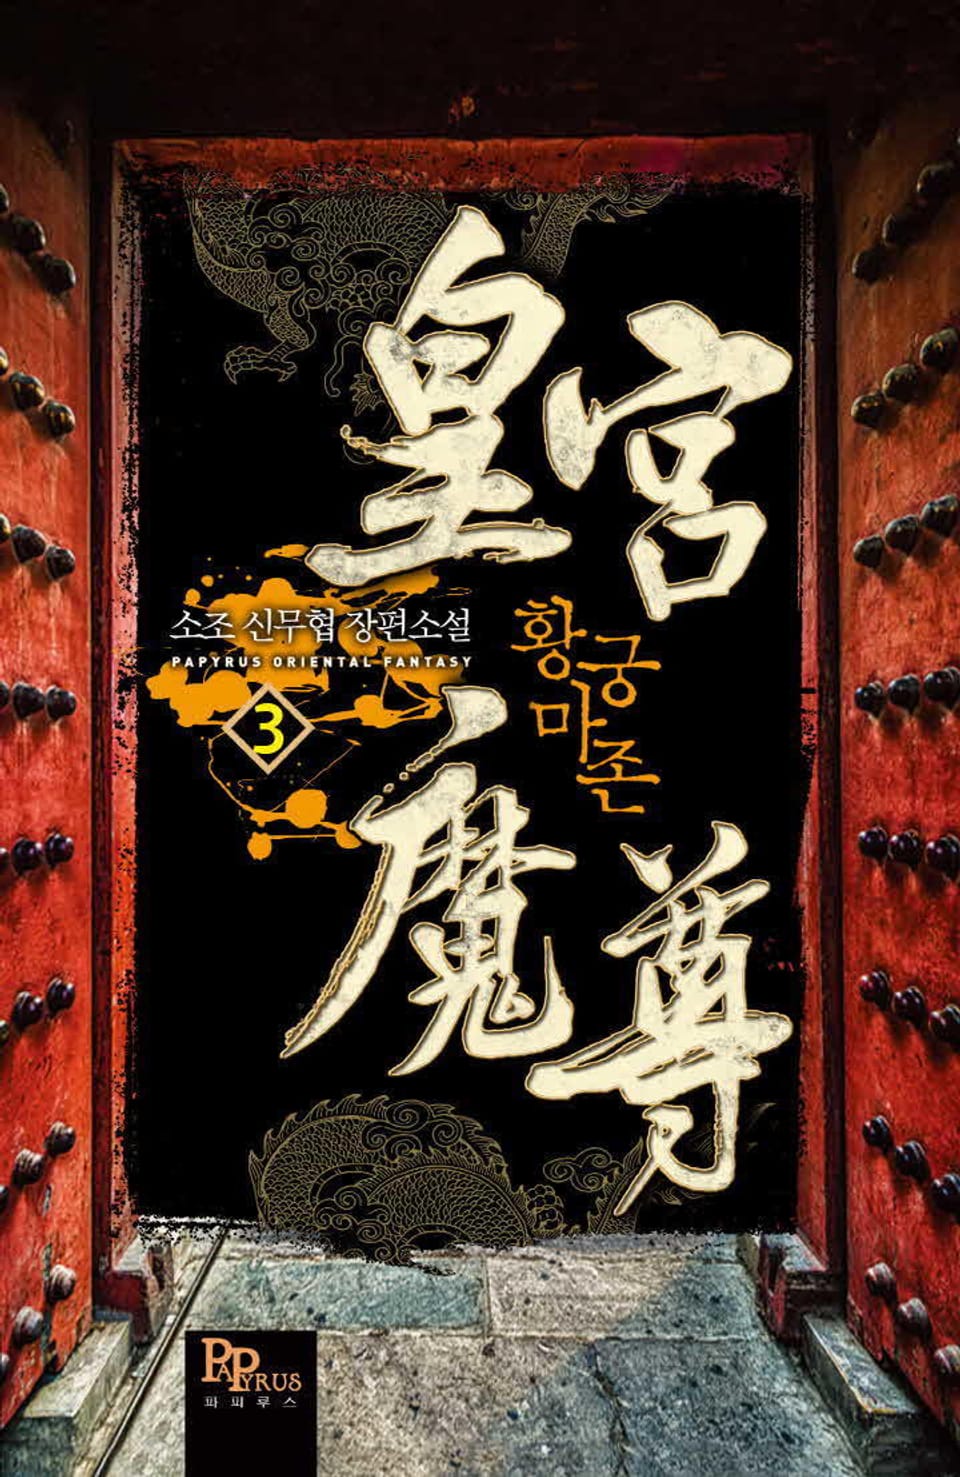 皇宮
소조 신무협 장편소설
PAPYRUS ORIENTAL FANTASY
3
황궁
마존
魔尊
PAPYRUS
파피루스